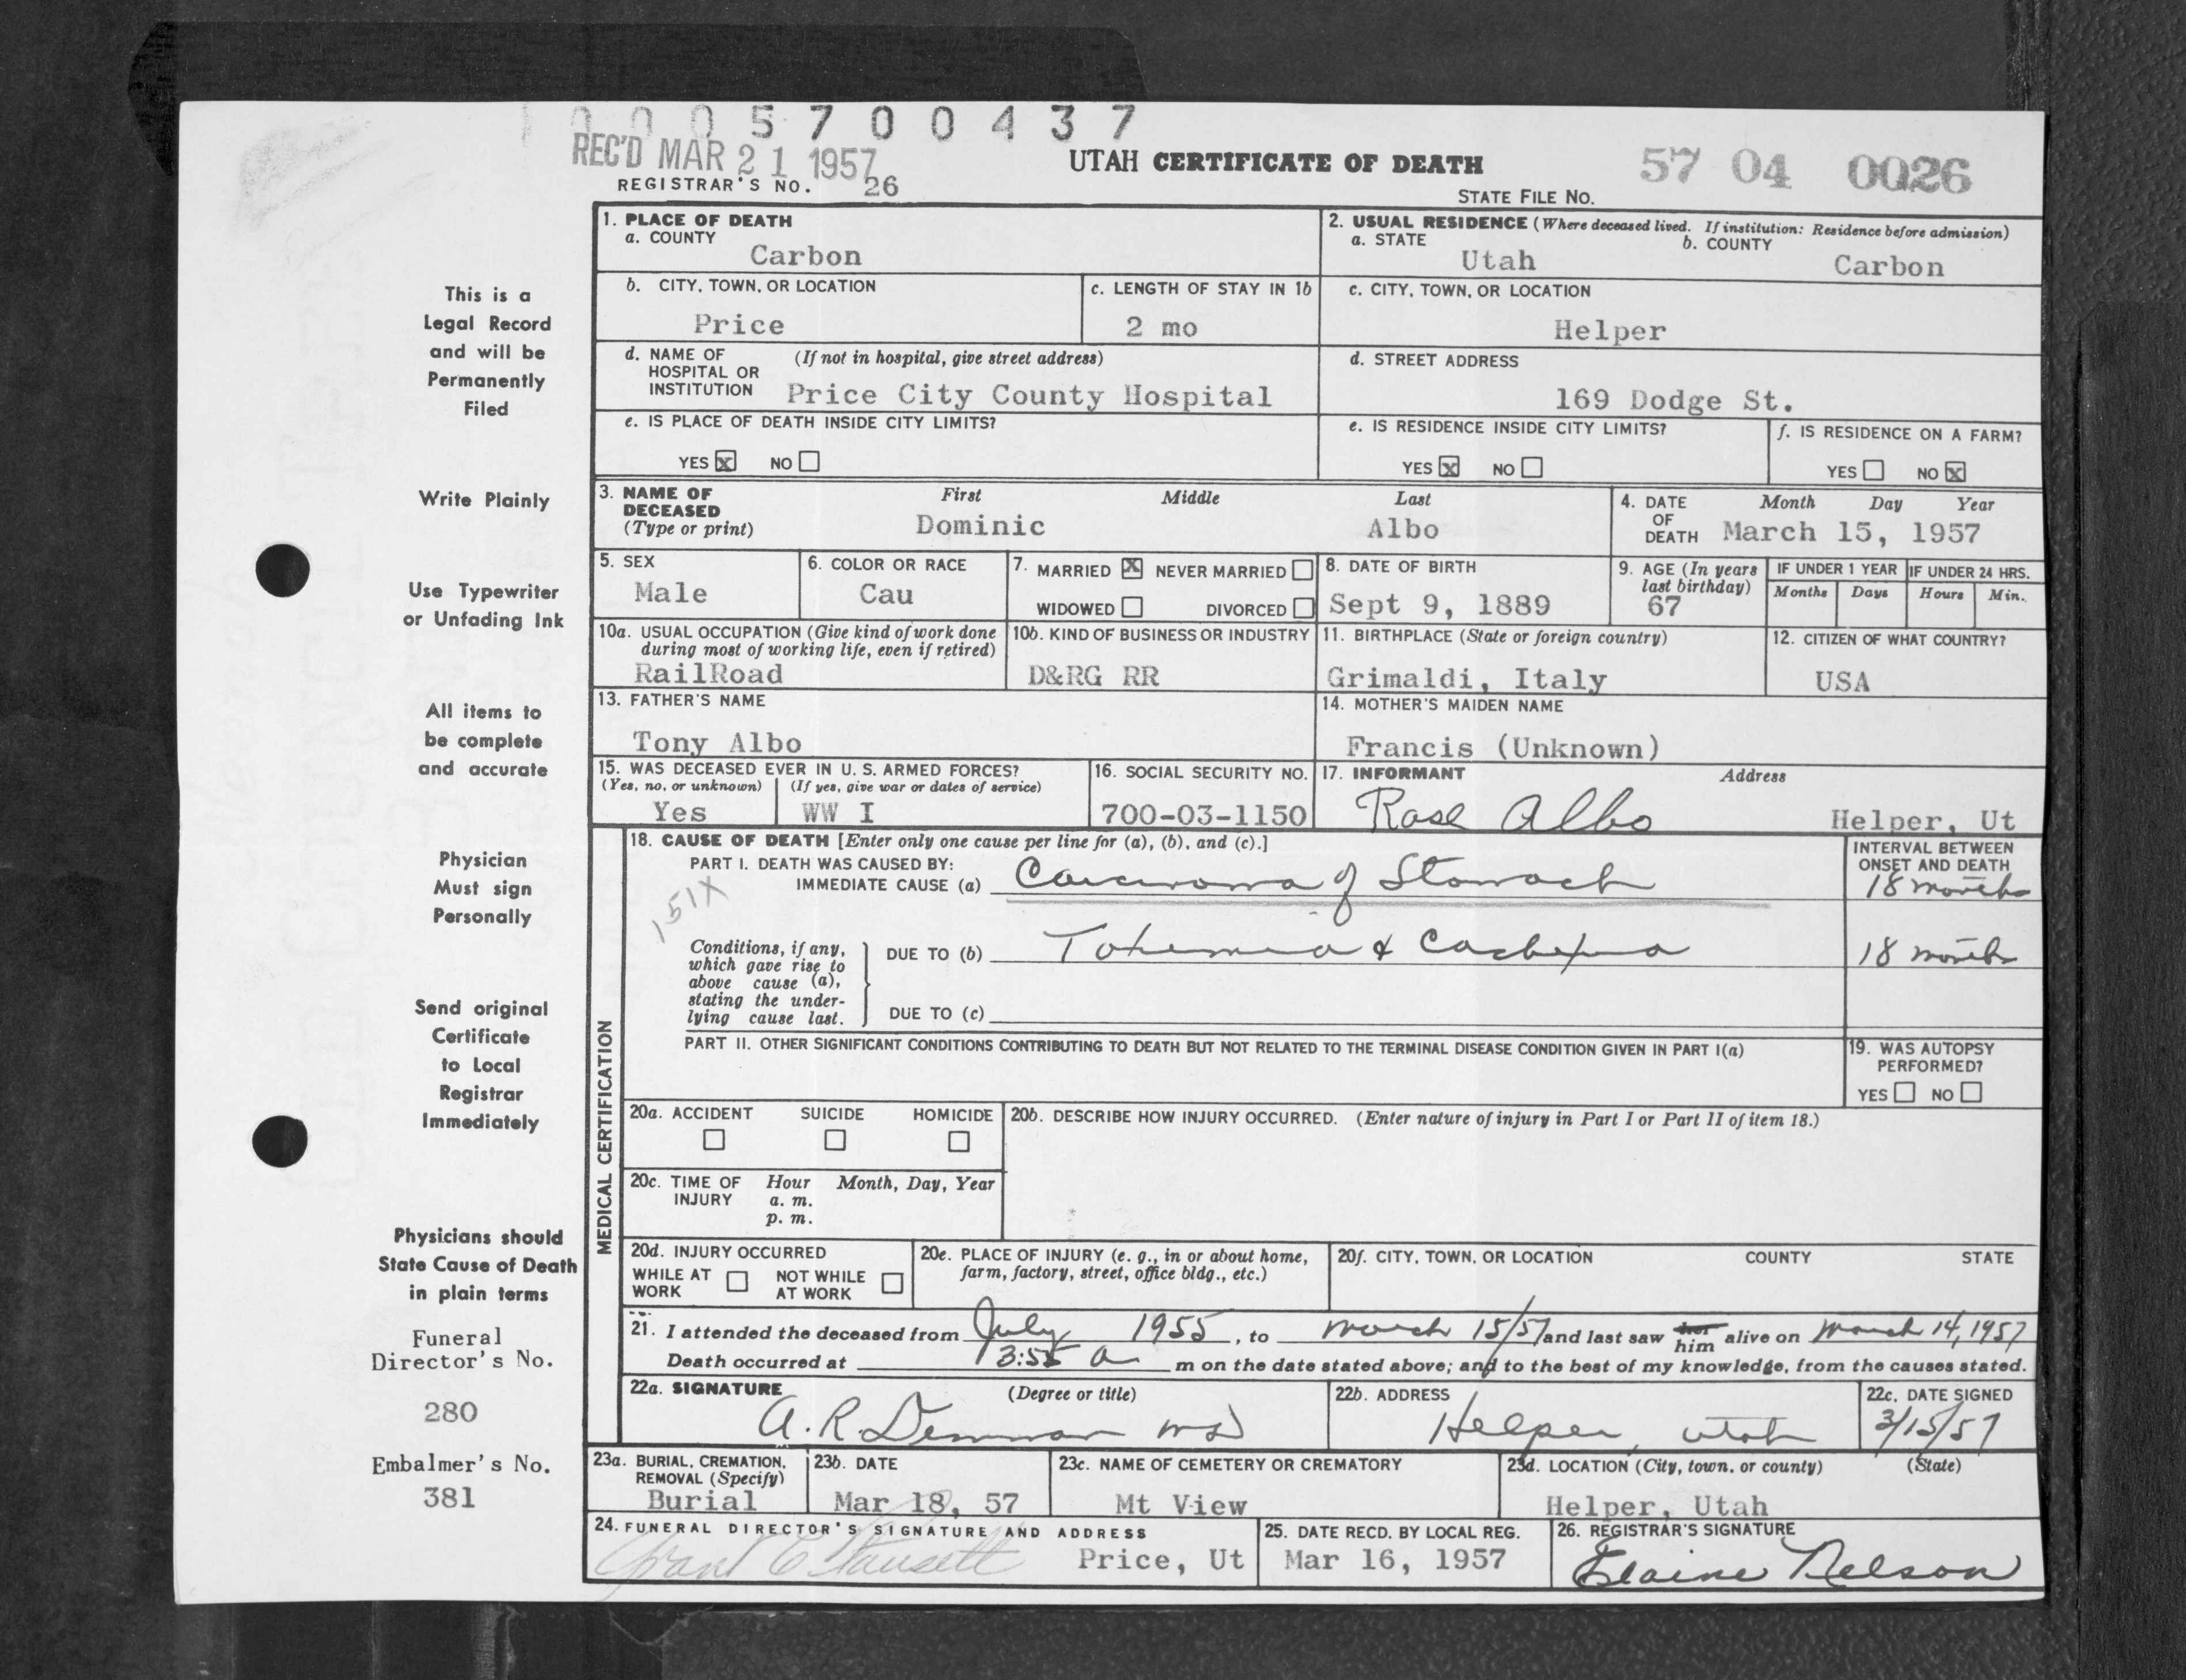 0005700437
REC'D MAR 21 1957
UTAH CERTIFICATE OF DEATH
57 04 0026
REGISTRAR'S NO. 26
STATE FILE NO.
1. PLACE OF DEATH
a. COUNTY
Carbon
2. USUAL RESIDENCE (Where deceased lived. If institution: Residence before admission)
a. STATE
b. COUNTY
Utah
Carbon
b. CITY, TOWN, OR LOCATION
Price
c. LENGTH OF STAY IN 1b
2 mo
c. CITY, TOWN, OR LOCATION
Helper
d. NAME OF HOSPITAL OR INSTITUTION
(If not in hospital, give street address)
Price City County Hospital
d. STREET ADDRESS
169 Dodge St.
e. IS PLACE OF DEATH INSIDE CITY LIMITS?
YES X NO
e. IS RESIDENCE INSIDE CITY LIMITS?
YES X NO
f. IS RESIDENCE ON A FARM?
YES NO X
3. NAME OF DECEASED (Type or print)
First Middle Last
Dominic Albo
4. DATE OF DEATH
Month Day Year
March 15, 1957
5. SEX
Male
6. COLOR OR RACE
Cau
7. MARRIED X NEVER MARRIED
WIDOWED DIVORCED
8. DATE OF BIRTH
Sept 9, 1889
9. AGE (In years last birthday)
67
IF UNDER 1 YEAR
Months Days
IF UNDER 24 HRS.
Hours Min.
10a. USUAL OCCUPATION (Give kind of work done during most of working life, even if retired)
RailRoad
10b. KIND OF BUSINESS OR INDUSTRY
D&RG RR
11. BIRTHPLACE (State or foreign country)
Grimaldi, Italy
12. CITIZEN OF WHAT COUNTRY?
USA
13. FATHER'S NAME
Tony Albo
14. MOTHER'S MAIDEN NAME
Francis (Unknown)
15. WAS DECEASED EVER IN U. S. ARMED FORCES?
(Yes, no, or unknown) (If yes, give war or dates of service)
Yes WW I
16. SOCIAL SECURITY NO.
700-03-1150
17. INFORMANT Address
Rose Albo Helper, Ut
MEDICAL CERTIFICATION
18. CAUSE OF DEATH [Enter only one cause per line for (a), (b), and (c).]
PART I. DEATH WAS CAUSED BY:
IMMEDIATE CAUSE (a) Carcinoma of Stomach
INTERVAL BETWEEN ONSET AND DEATH
18 months
151X
Conditions, if any, which gave rise to above cause (a), stating the underlying cause last.
DUE TO (b) Toxemia & Cachexia
18 months
DUE TO (c)
PART II. OTHER SIGNIFICANT CONDITIONS CONTRIBUTING TO DEATH BUT NOT RELATED TO THE TERMINAL DISEASE CONDITION GIVEN IN PART I(a)
19. WAS AUTOPSY PERFORMED?
YES NO
20a. ACCIDENT SUICIDE HOMICIDE
20b. DESCRIBE HOW INJURY OCCURRED. (Enter nature of injury in Part I or Part II of item 18.)
20c. TIME OF INJURY
Hour Month, Day, Year
a. m.
p. m.
20d. INJURY OCCURRED
WHILE AT WORK NOT WHILE AT WORK
20e. PLACE OF INJURY (e. g., in or about home, farm, factory, street, office bldg., etc.)
20f. CITY, TOWN, OR LOCATION COUNTY STATE
21. I attended the deceased from July 1955, to March 15/57 and last saw her him alive on March 14, 1957
Death occurred at 3:55 a m on the date stated above; and to the best of my knowledge, from the causes stated.
22a. SIGNATURE (Degree or title)
A. R. Demman MD
22b. ADDRESS
Helper, Utah
22c. DATE SIGNED
3/15/57
23a. BURIAL, CREMATION, REMOVAL (Specify)
Burial
23b. DATE
Mar 18, 57
23c. NAME OF CEMETERY OR CREMATORY
Mt View
23d. LOCATION (City, town, or county) (State)
Helper, Utah
24. FUNERAL DIRECTOR'S SIGNATURE AND ADDRESS
Grant C Fausett Price, Ut
25. DATE RECD. BY LOCAL REG.
Mar 16, 1957
26. REGISTRAR'S SIGNATURE
Elaine Nelson
This is a
Legal Record
and will be
Permanently
Filed
Write Plainly
Use Typewriter
or Unfading Ink
All items to
be complete
and accurate
Physician
Must sign
Personally
Send original
Certificate
to Local
Registrar
Immediately
Physicians should
State Cause of Death
in plain terms
Funeral
Director's No.
280
Embalmer's No.
381